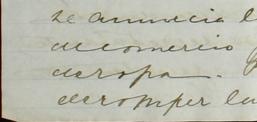 se anuncia l
de comercio
de ropa.
de romper la